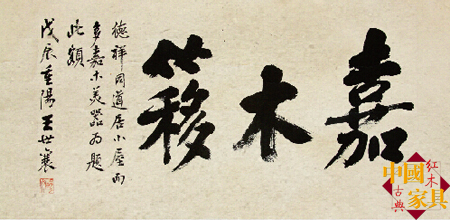 嘉木簃
德祥同道居小屋而
多嘉木美器为題
此额
戊辰重陽王世襄
中國
红木
古典
家具